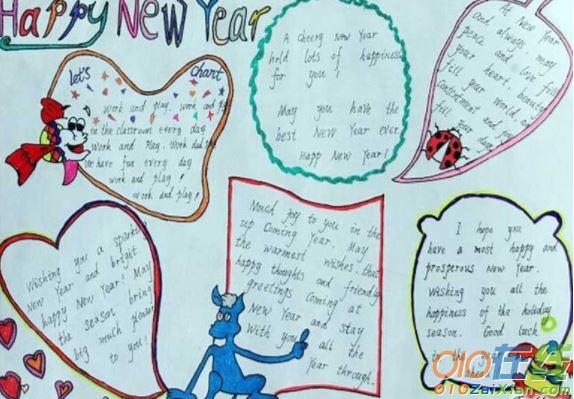 Happy New Year
let's chant
work and play. work and play
in the classroom every day
work and play. Work and play
We have fun every day
work and play!
work and play!
A cheery New Year
hold lots of happiness
for you!
May you have the
best New Year ever.
Happy New Year!
At New Year
and always may
peace and love fill
your heart, beauty
fill your world, and
contentment and joy
fill your days
Wishing you a sparkl
New Year and bright
happy New Year! May
the season bring
big much pleasure
to you!
Much joy to you in the
up Coming Year. May
the warmest wishes, that
happy thoughts and friendly
greetings Coming at
New Year and stay
with you all the
Year through.
I hope you
have a most happy and
prosperous New Year.
Wishing you all the
happiness of the holiday
season. Good luck
in the year
010在线
010ZaiXian.com